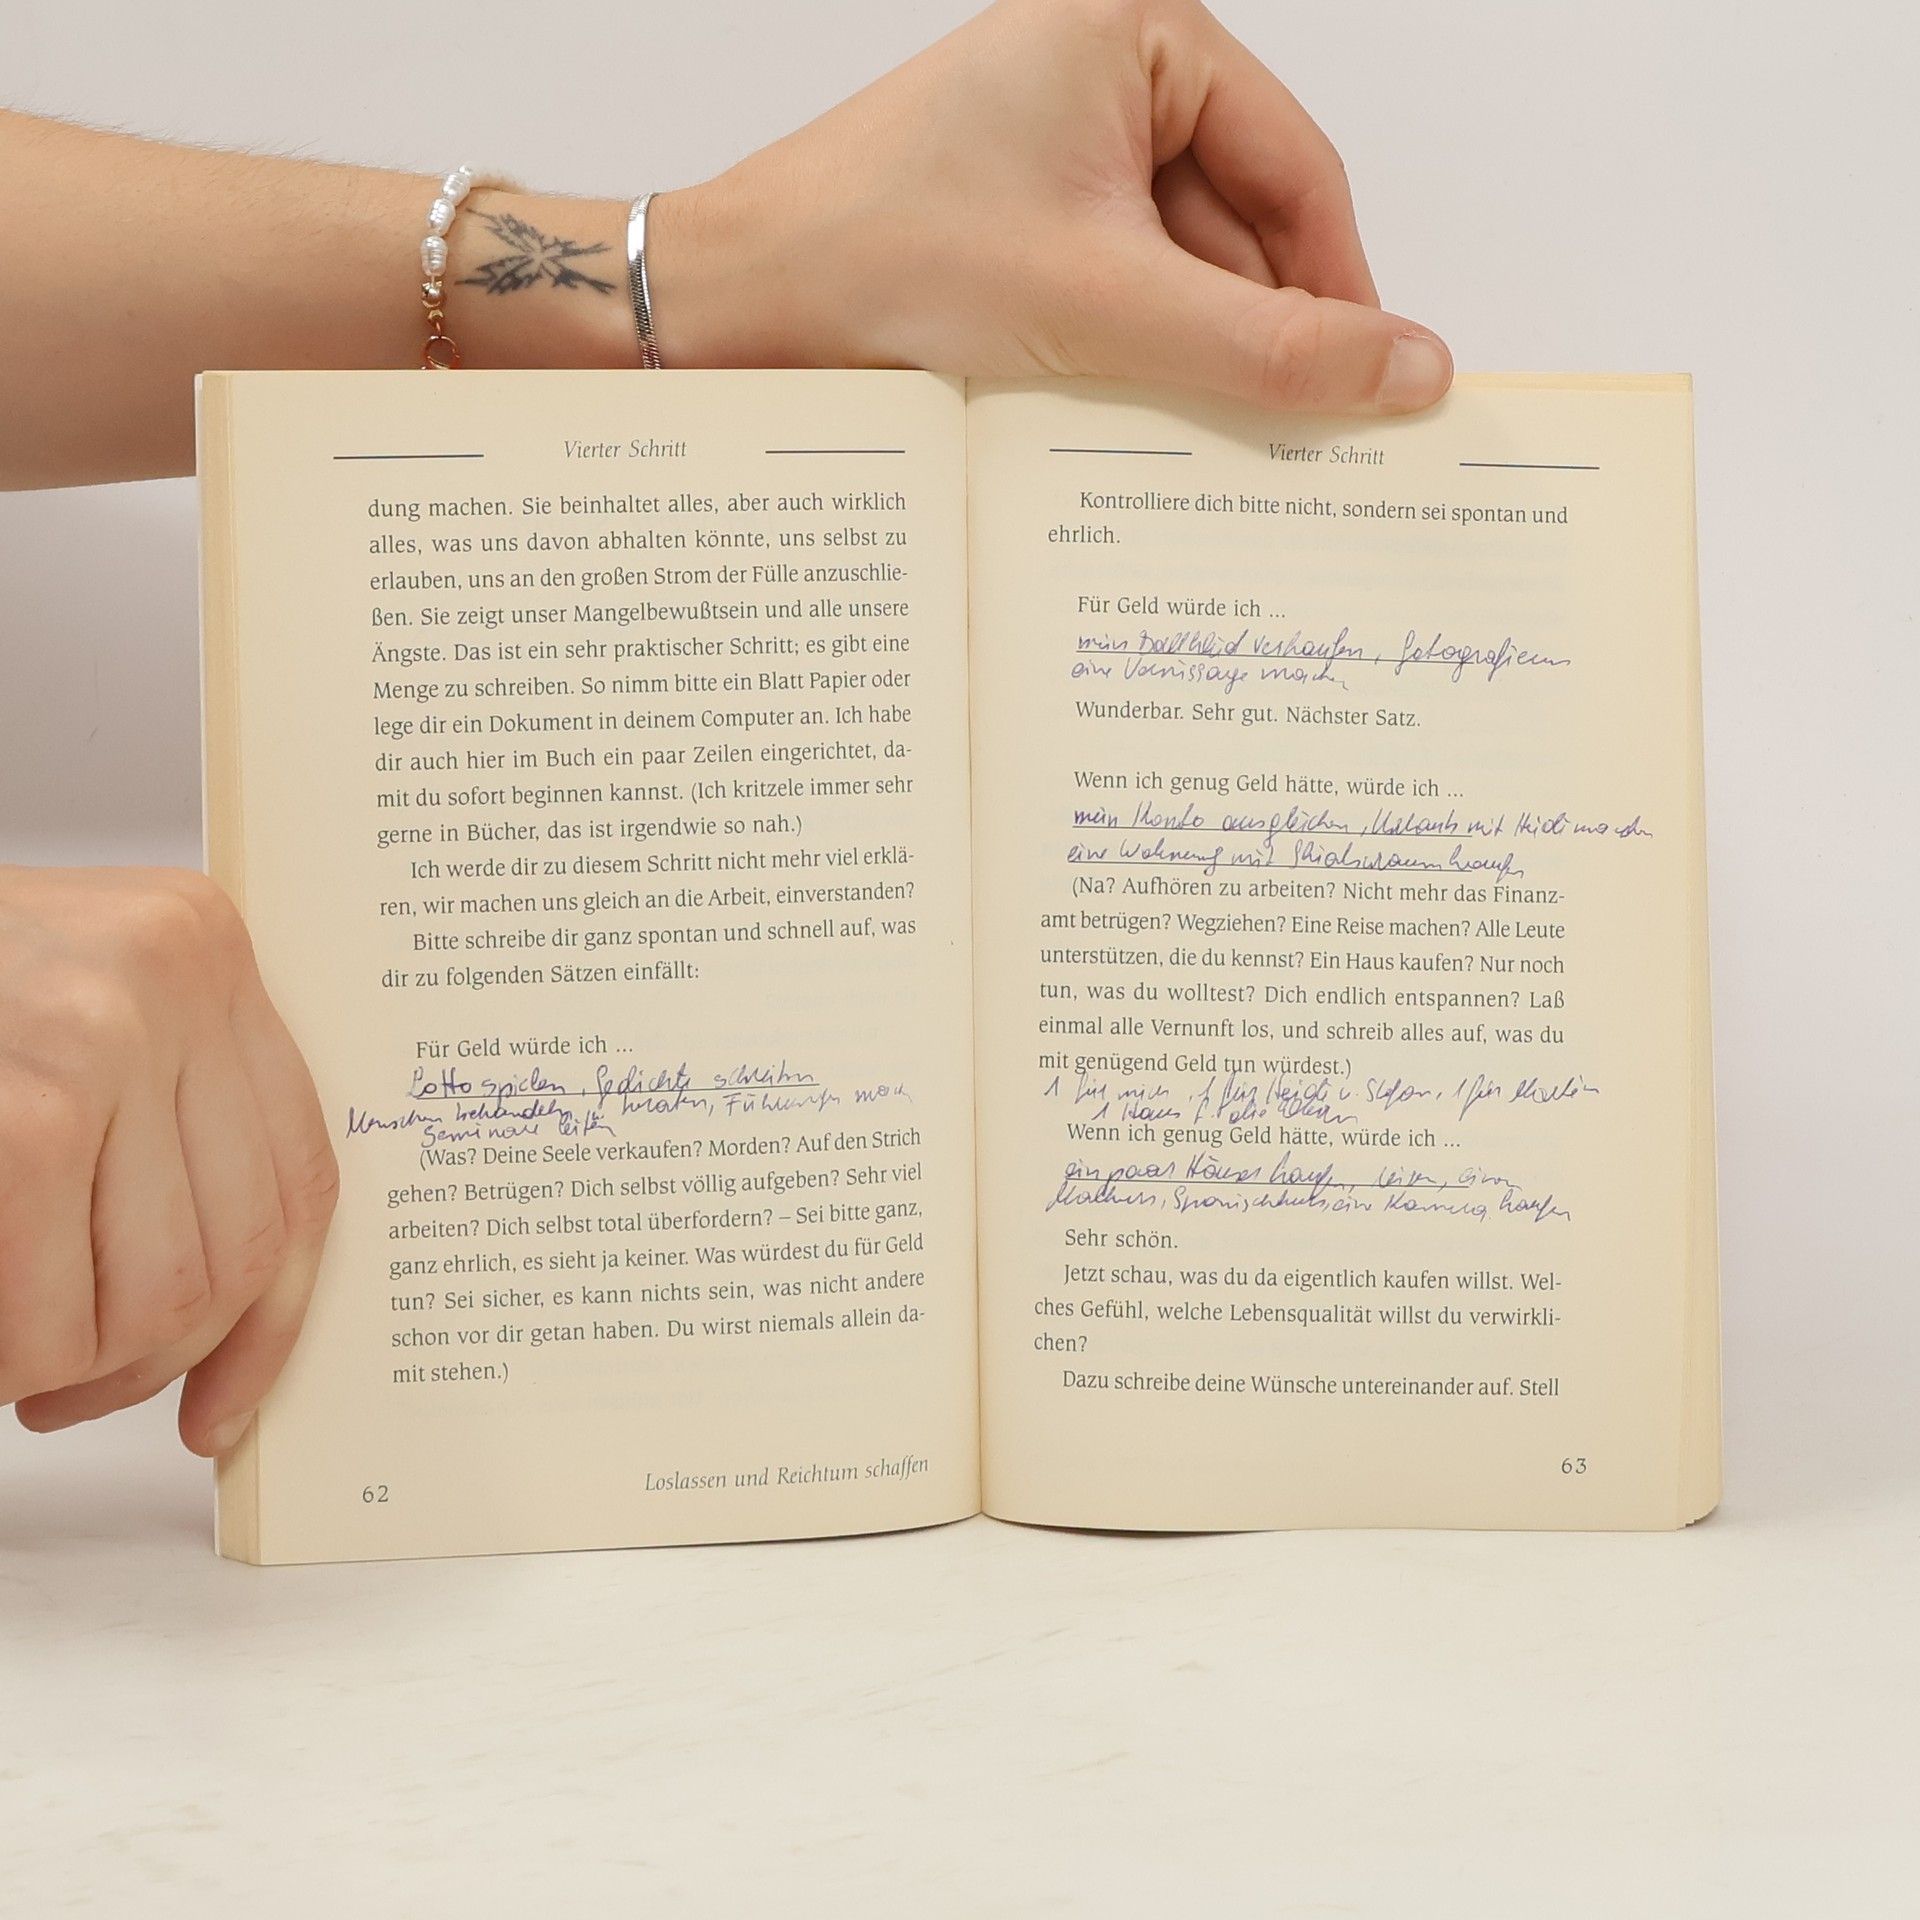 Vierter Schritt
dung machen. Sie beinhaltet alles, aber auch wirklich
alles, was uns davon abhalten könnte, uns selbst zu
erlauben, uns an den großen Strom der Fülle anzuschlie-
ßen. Sie zeigt unser Mangelbewußtsein und alle unsere
Ängste. Das ist ein sehr praktischer Schritt; es gibt eine
Menge zu schreiben. So nimm bitte ein Blatt Papier oder
lege dir ein Dokument in deinem Computer an. Ich habe
dir auch hier im Buch ein paar Zeilen eingerichtet, da-
mit du sofort beginnen kannst. (Ich kritzele immer sehr
gerne in Bücher, das ist irgendwie so nah.)
Ich werde dir zu diesem Schritt nicht mehr viel erklä-
ren, wir machen uns gleich an die Arbeit, einverstanden?
Bitte schreibe dir ganz spontan und schnell auf, was
dir zu folgenden Sätzen einfällt:
Für Geld würde ich ...
Lotto spielen, Gedichte schreiben
Menschen behandeln, beraten, Führungen
Seminare leiten
(Was? Deine Seele verkaufen? Morden? Auf den Strich
gehen? Betrügen? Dich selbst völlig aufgeben? Sehr viel
arbeiten? Dich selbst total überfordern? – Sei bitte ganz,
ganz ehrlich, es sieht ja keiner. Was würdest du für Geld
tun? Sei sicher, es kann nichts sein, was nicht andere
schon vor dir getan haben. Du wirst niemals allein da-
mit stehen.)
62
Loslassen und Reichtum schaffen
Vierter Schritt
Kontrolliere dich bitte nicht, sondern sei spontan und
ehrlich.
Für Geld würde ich ...
mein verkaufen, fotografieren
eine Vernissage machen
Wunderbar. Sehr gut. Nächster Satz.
Wenn ich genug Geld hätte, würde ich ...
mein Konto ausgleichen, Urlaub mit Heidi machen
eine Wohnung mit kaufen
(Na? Aufhören zu arbeiten? Nicht mehr das Finanz-
amt betrügen? Wegziehen? Eine Reise machen? Alle Leute
unterstützen, die du kennst? Ein Haus kaufen? Nur noch
tun, was du wolltest? Dich endlich entspannen? Laß
einmal alle Vernunft los, und schreib alles auf, was du
mit genügend Geld tun würdest.)
1 für mich, 1 für Heidi u. Stefan, 1 für
1 Haus f. die Eltern
Wenn ich genug Geld hätte, würde ich ...
ein paar Häuser kaufen, reisen, einen
Malkurs, Spanischkurs, eine Kamera kaufen
Sehr schön.
Jetzt schau, was du da eigentlich kaufen willst. Wel-
ches Gefühl, welche Lebensqualität willst du verwirkli-
chen?
Dazu schreibe deine Wünsche untereinander auf. Stell
63